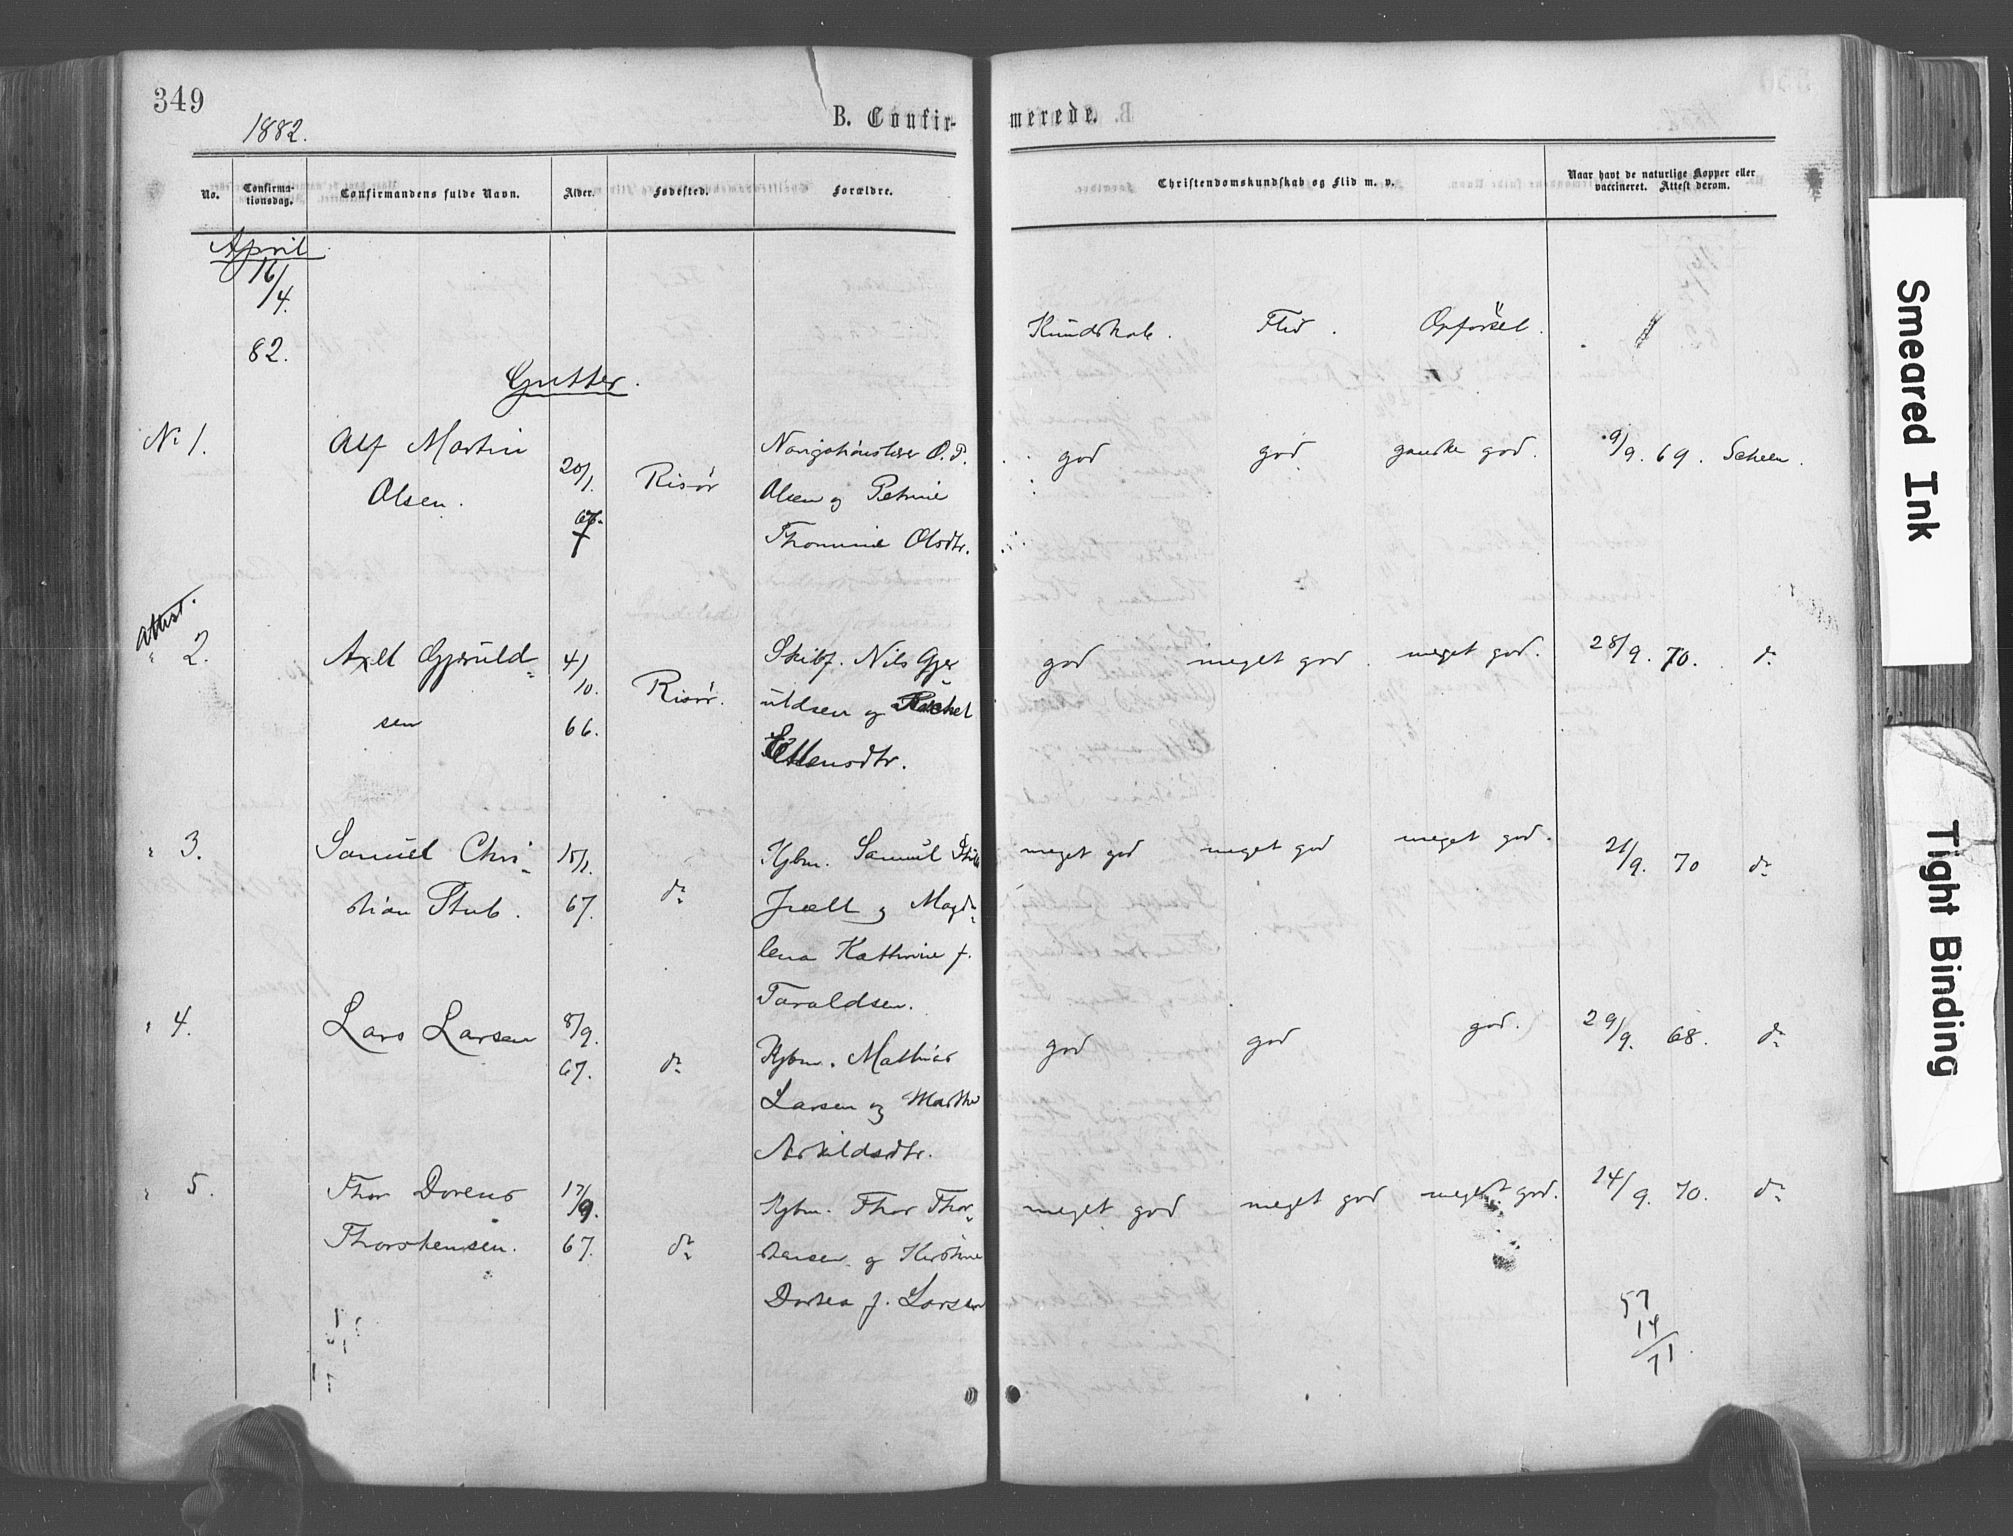 349
1882.
B. Confir-
merede.
No.
Confirma-
tionsdag.
Confirmandens fulde Navn.
Alder.
Fødested.
Forældre.
Christendomskundskab og Flid m. v.
Naar havt de naturlige Kopper eller
vaccineret. Attest derom.
April
16/4.
82.
Kundskab. Flid. Opførsel.
Gutter.
No 1.
Alf Martin
Olsen.
20/1.
67.
Risør
O. T.
Olsen og Petrine
Thomine Olsdtr.
god
god
ganske god.
9/9. 69. Scheen.
Attest.
" 2.
Axel Gjeruld-
sen
4/10.
66.
Risør.
Skibf. Nils Gjer
uldsen og Rachel
Ellensdtr.
god
meget god
meget god.
28/9. 70. do
" 3.
Samuel Chri-
stian Stub.
15/1.
67.
do
Kjbm. Samuel Stub
Juell og Magda-
lena Kathrine f.
Taraldsen.
meget god
meget god
meget god.
21/9. 70 do
" 4.
Lars Larsen
8/9.
67.
do
Kjbm. Mathias
Larsen og Marthe
Askildsdtr.
god
god
god.
29/9. 68. do
" 5.
Thor Dorens
Thorstensen.
17/9.
67.
do
Kjbm. Thor Thor-
stensen og Kirstine
Dorthea f. Larsen
meget god
meget god
meget god.
14/9. 70. do
57
14
71
Smeared Ink
Tight Binding